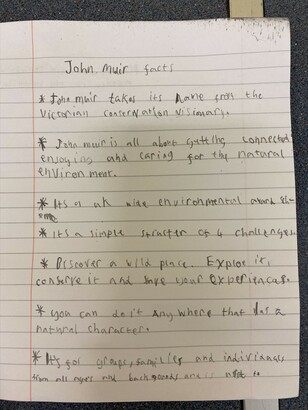 John muir facts
* John muir takes its name from the
Victorian conservation visionary.
* John muir is all about getting connected
enjoying and caring for the natural
environment.
* Its a uk wide environmental award
* its a simple structer of 4 challenges
* Discover a wild place. Explore it,
conserve it and save your experiences.
* you can do it any where that has a
natural character.
* Its for groups, families and
from all ages and backgrounds